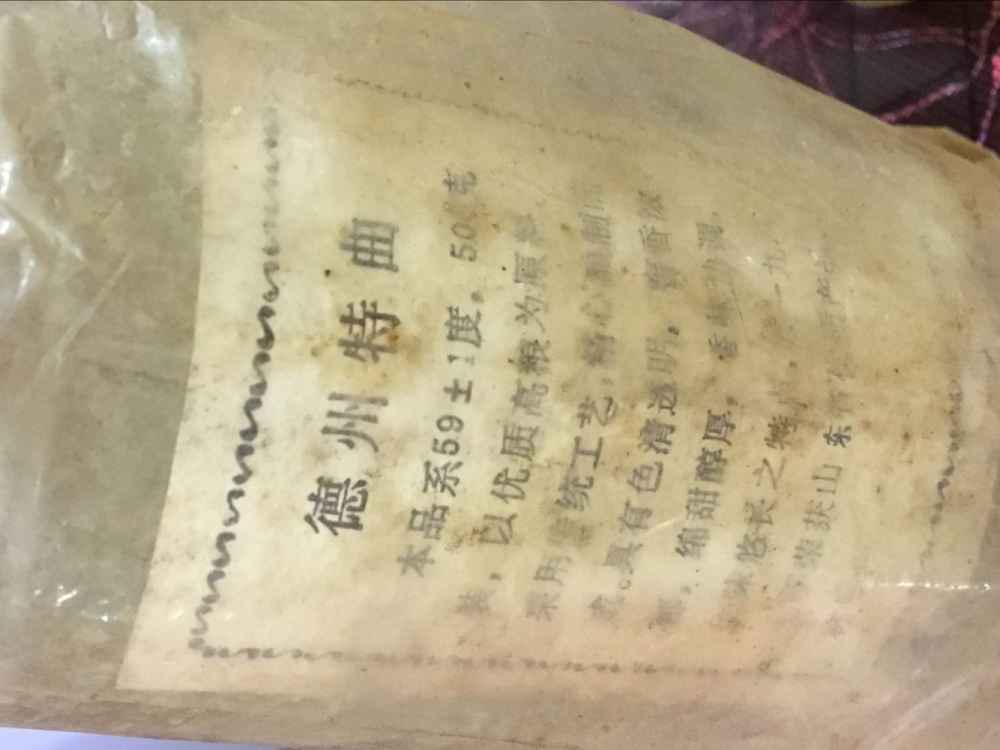 德州特曲
本品系59±1度。50克
装，以优质高粱为原料
采用传统工艺，精心酿制而
成。具有色清透明，窖香浓
，绵甜醇厚，香味协调
味悠长之特，一九
荣获山东